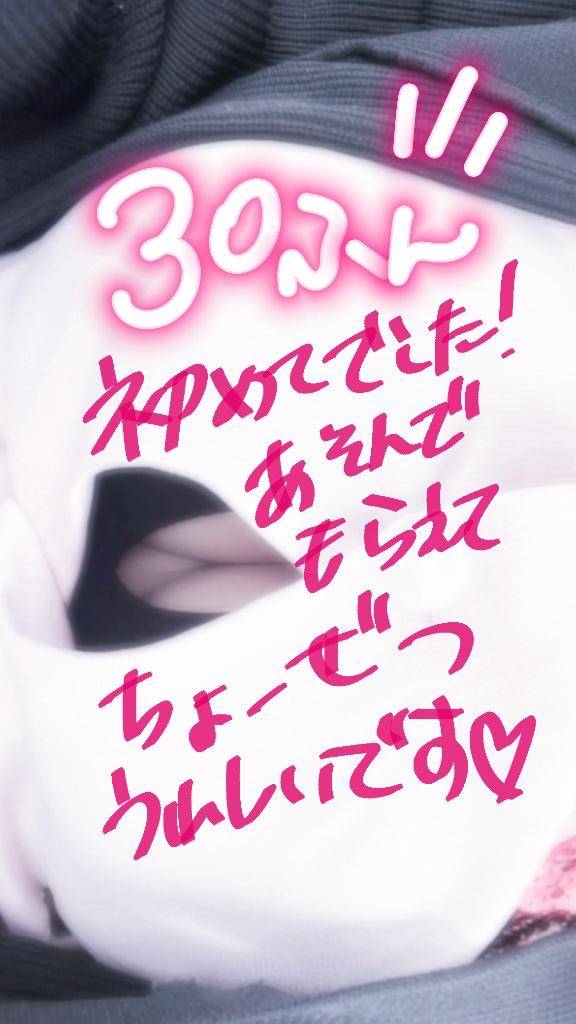 30ふん
初めてでした!
あそんで
もらえて
ちょーぜつ
うれしいです♡